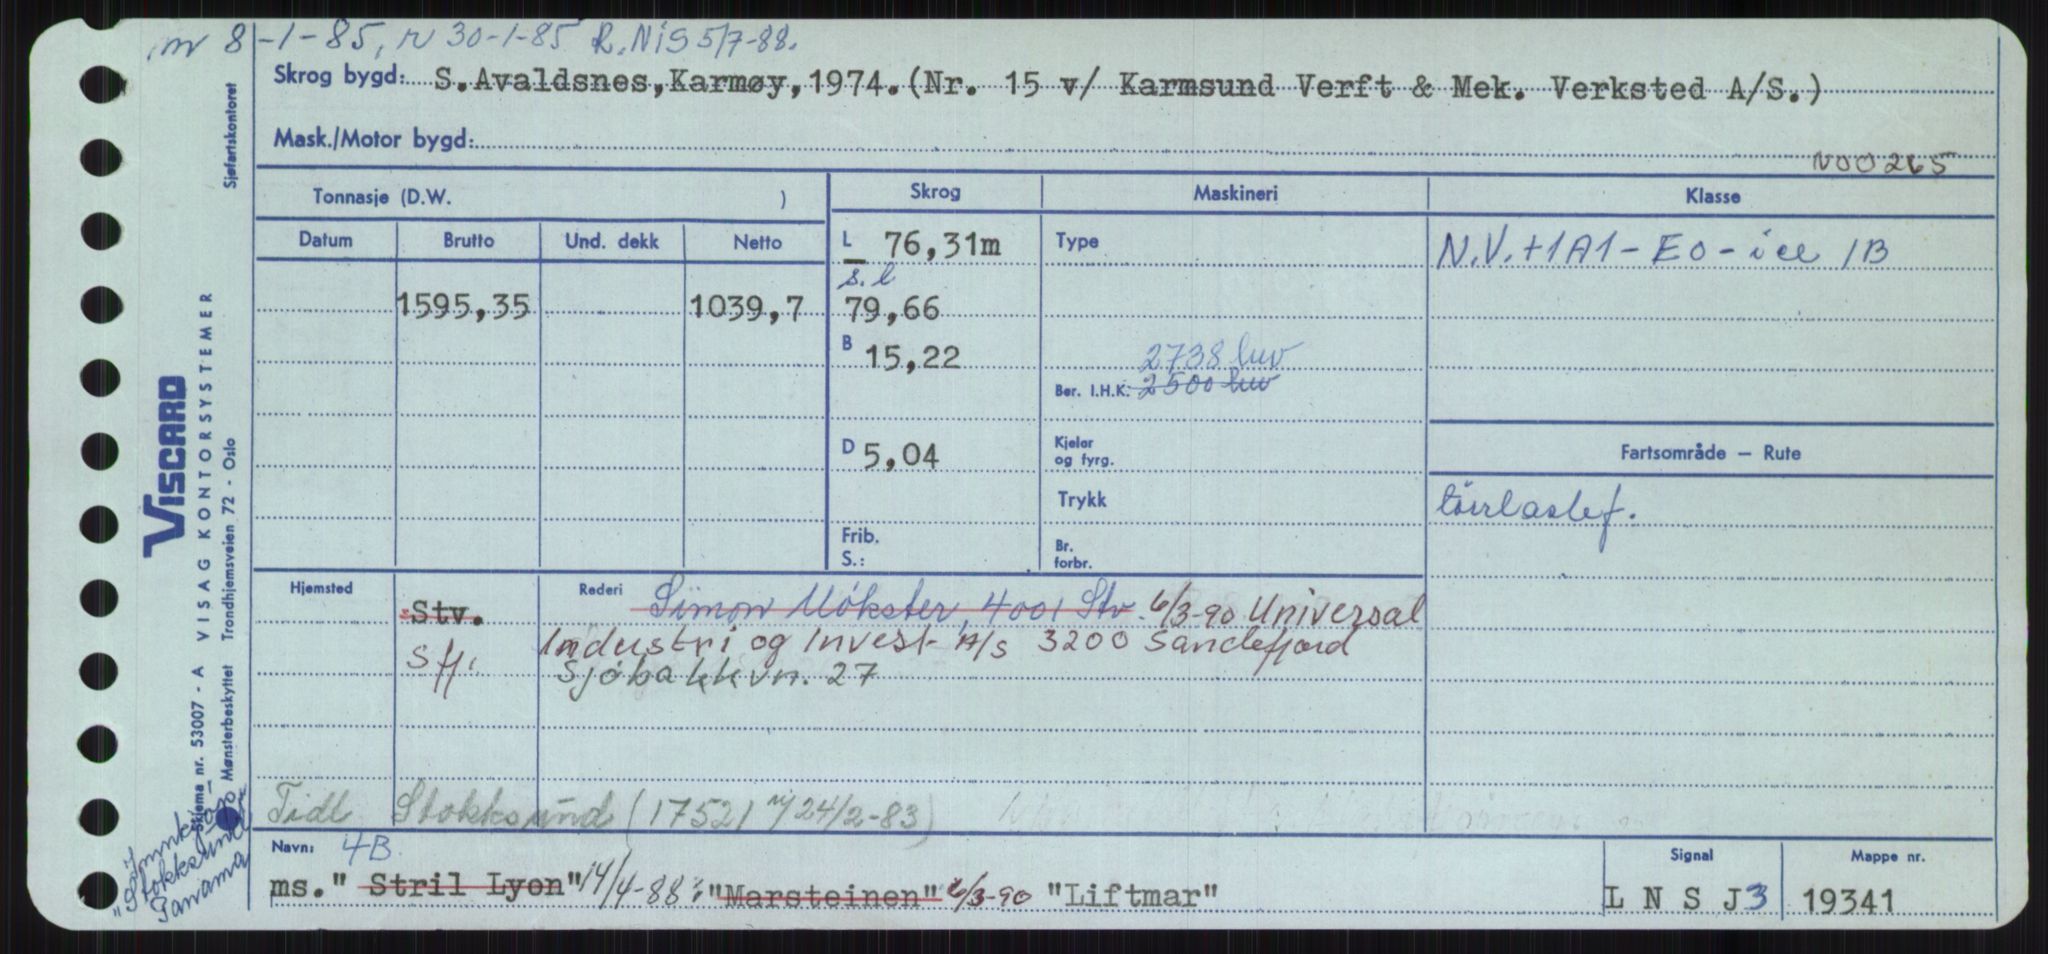 nr 8-1-85, r 30-1-85 R. NIS 5/7-88.
Skrog bygd: S.Avaldsnes,Karmøy,1974.(Nr. 15 v/ Karmsund Verft & Mek. Verksted A/S.)
Mask./Motor bygd:
N00265
Tonnasje (D.W. )
Skrog
Maskineri
Klasse
Datum
Brutto
Und. dekk
Netto
L 76,31m
Type
N.V.+1A1-E0-ice 1B
s.l
1595,35
1039,7
79,66
B 15,22
2738 luv
Ber. I.H.K. 2500 luv
Fartsområde — Rute
D 5,04
Kjeler
og fyrg.
Trykk
törrlastef.
Frib.
S.:
Br.
forbr.
Hjemsted
Stv.
Rederi
Simon Mökster, 4001 Stv. 6/3-90 Universal
Sfj.
Industri og Invest A/S 3200 Sandefjord
Sjöbakkvn. 27
Tidl Stokksund (17521 24/2-83)
Navn: 4B
Signal
Mappe nr.
ms." Stril Lyon" 14/4-88: "Marsteinen" 6/3-90 "Liftmar"
L N S J3
19341
Sjøfartskontoret
VISCARD
VISAG KONTORSYSTEMER
Trondhjemsveien 72 - Oslo
Skjema nr. 53007 - A
Mønsterbeskyttet
"Stokksund"
Panama